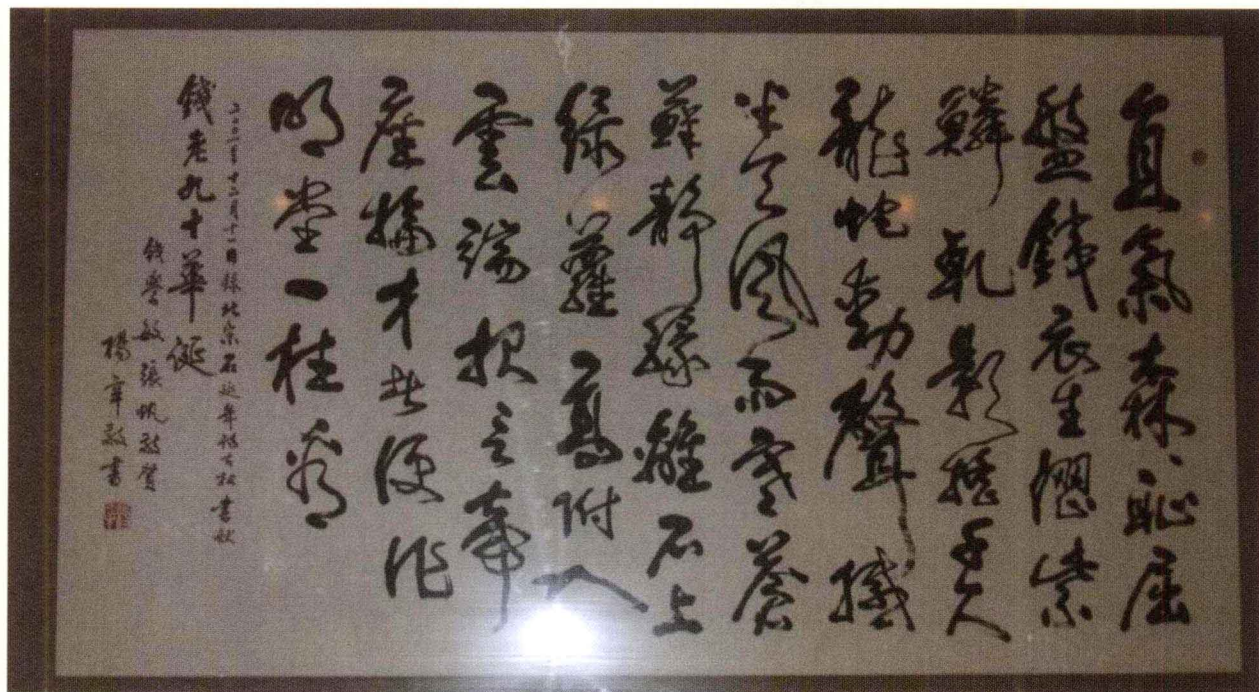 直氣森森恥屈
盤鐵衣生澀紫
鱗乾影摇千尺
龍蛇動聲撼
半天風雨寒蒼
蘚靜緣離石上
緑蘿高附入
雲端报言帝
座掄才者便作
明堂一柱看
二〇〇一年十二月十一日錄北宋石延年詩古松書祝
錢老九十華诞
錢學敏 張帆敬賀
楊辛敬書